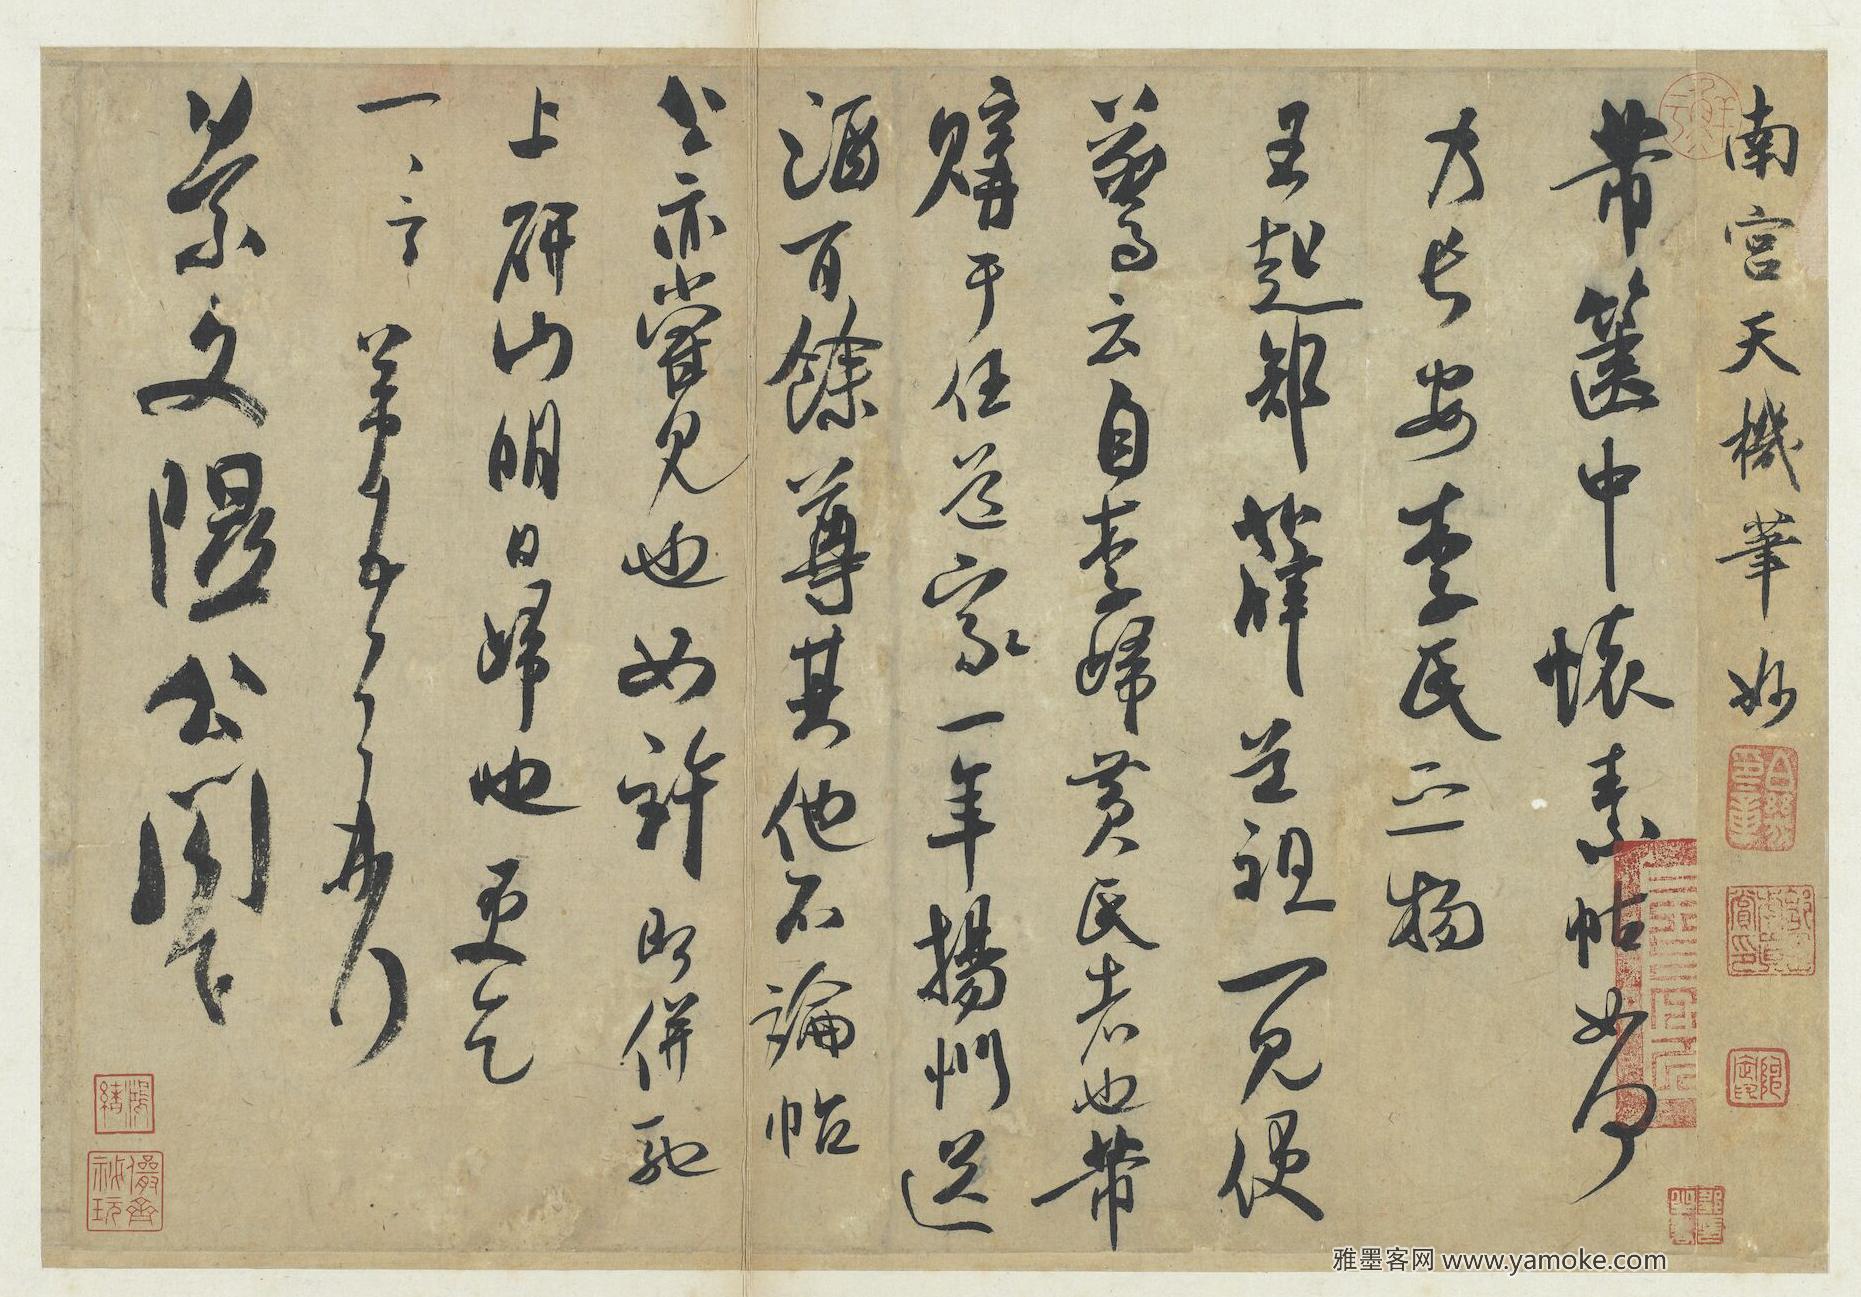 南宮天機筆妙
芾篋中懷素帖如何
乃長安李氏之物
王起郎薛道祖一見便
驚云自李歸黃氏者也芾
購于任道家一年揚州送
酒百餘尊其他不論帖
公亦嘗見也如許即併馳
上研山明日歸也更乞
一言芾頓首再拜
景文隰公閣下
儼齋秘玩
雅墨客网 www.yamoke.com